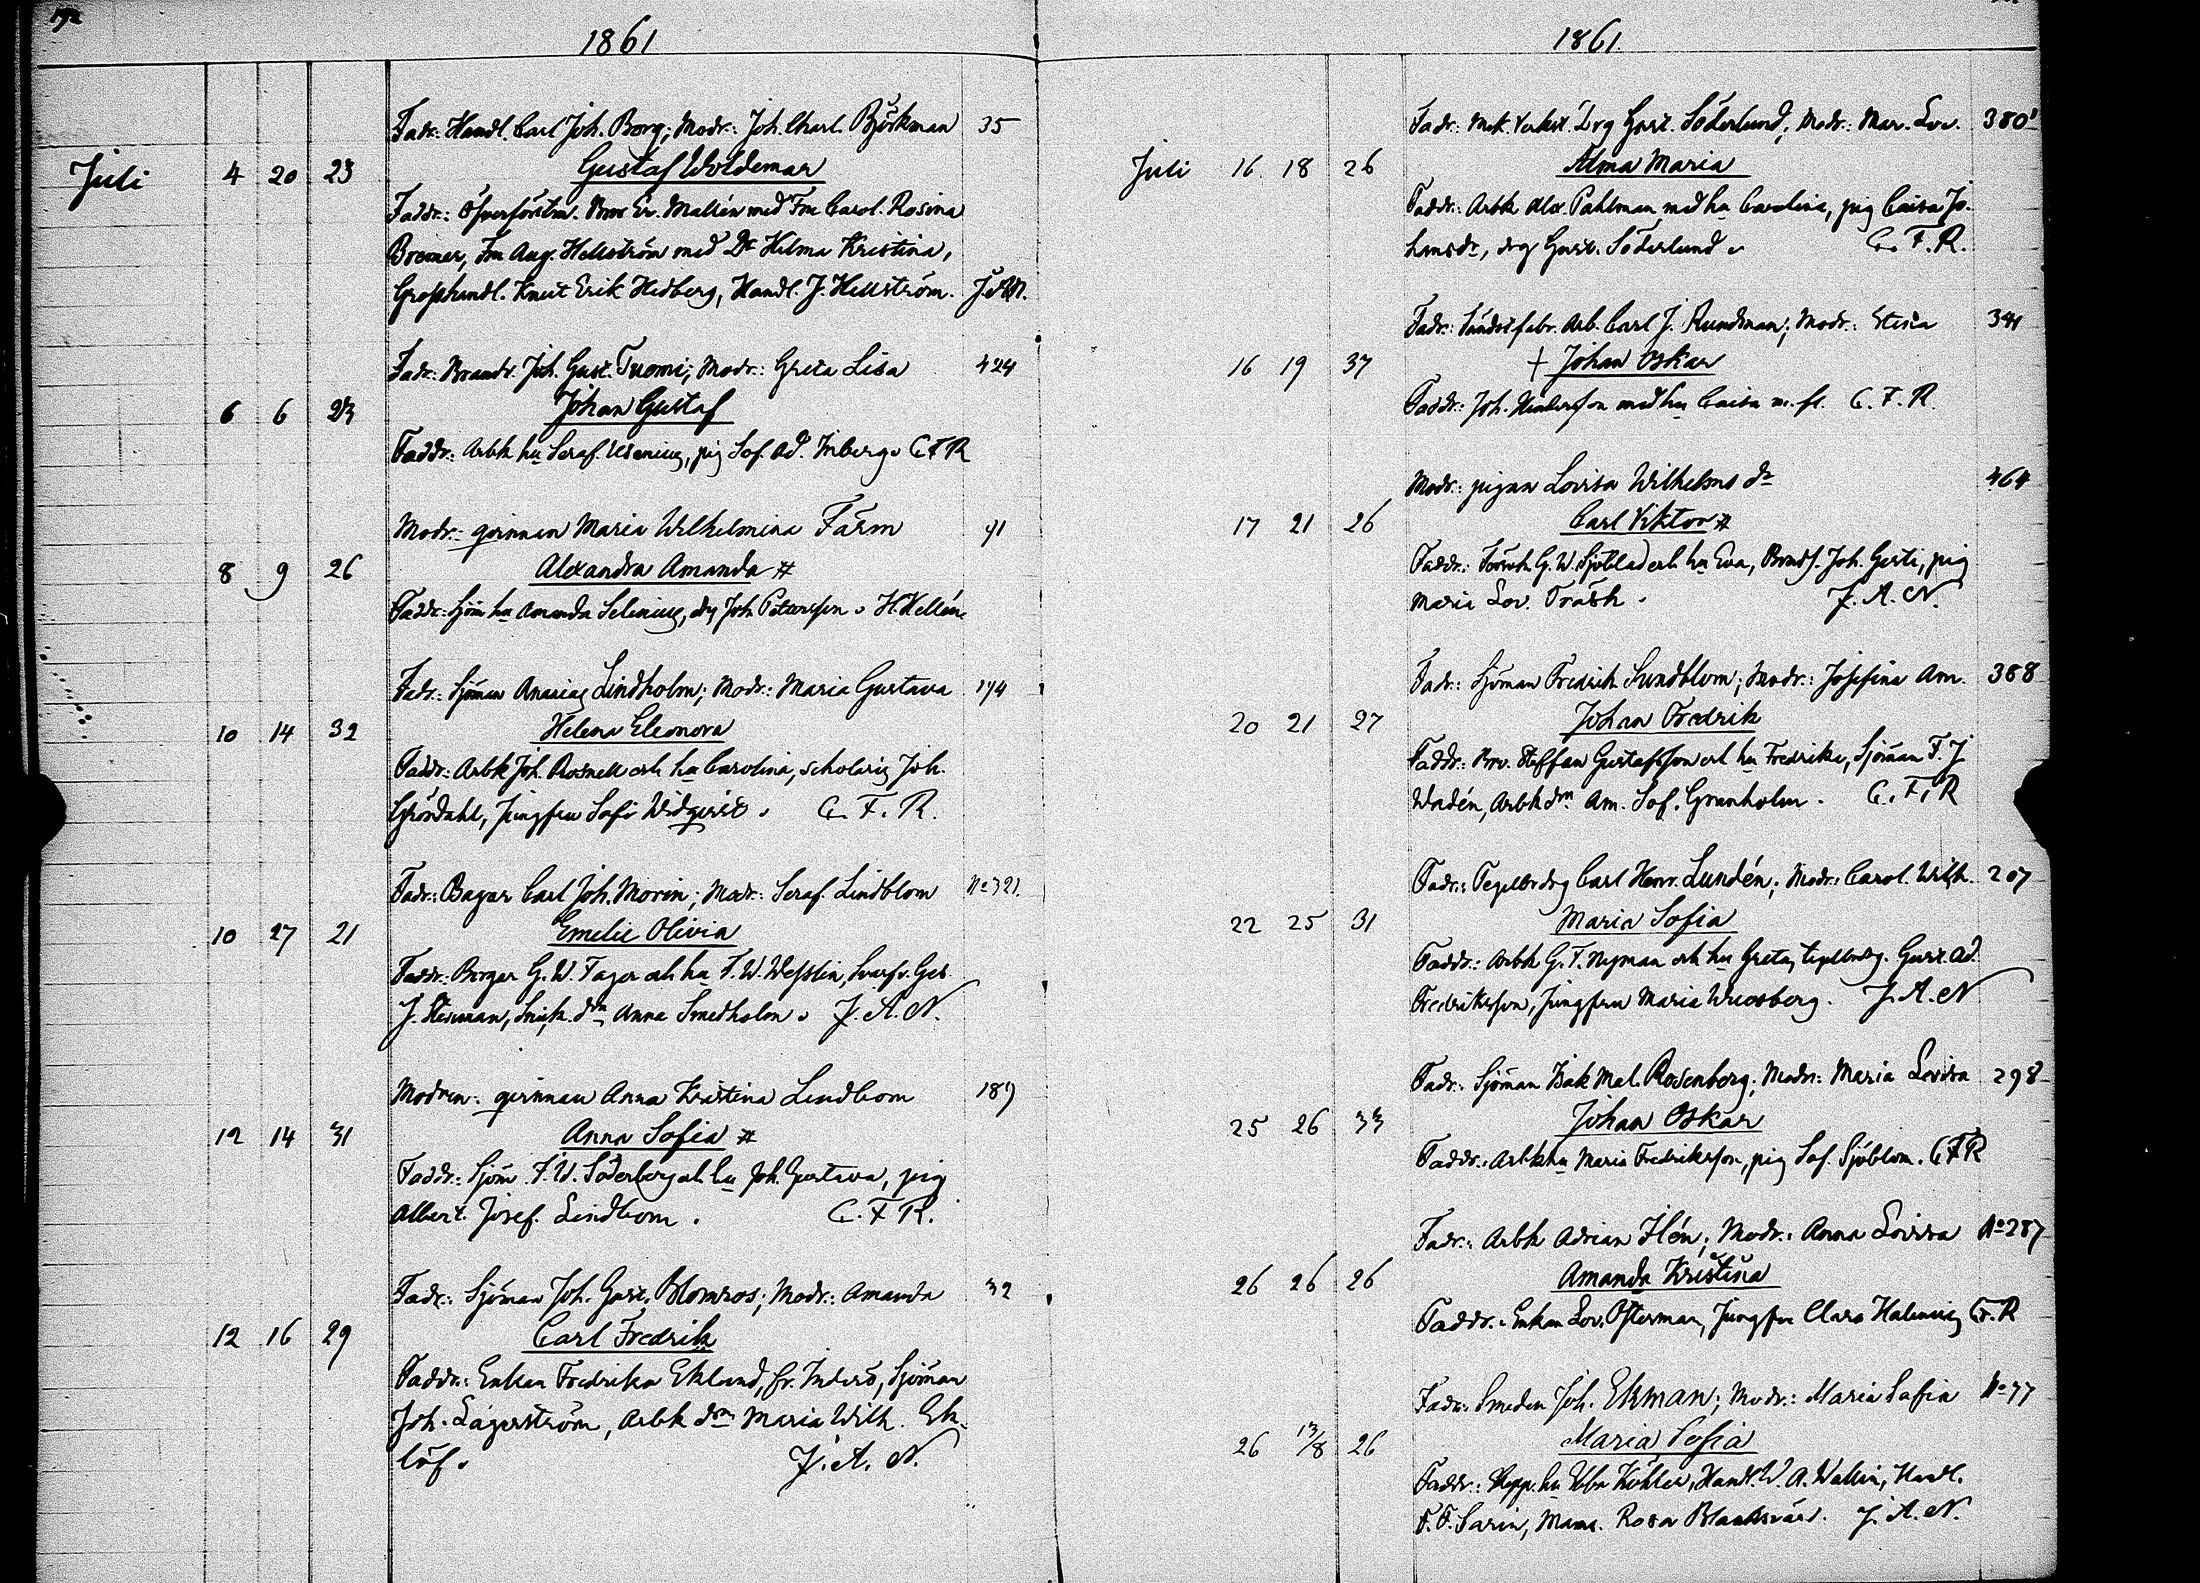 192
1861
Fadr: Handl. Carl Joh. Borg; Modr: Joh. Charl. Björkman 35
Juli 4 20 23 Gustaf Woldemar
Faddr: Öfverförstm. Er. Mallén med Fru Carol. Rosina
Bremer, Fru Aug. Hellström med Dr Hilma Kristina,
Grosshandl. Knut Erik Hedberg, Handl. J. Hellström. J.A.N.
Fadr: Brandv. Joh. Gust. Tuomi; Modr: Greta Lisa 424
6 6 23 Johan Gustaf
Faddr: Arbk hu Seraf. Usenius, pig Sof. Ad. Inberg. CFR
Modr: qvinnan Maria Wilhelmina Färm 91
8 9 26 Alexandra Amanda #
Faddr: Sjöm hu Amanda Selenius, drg Joh. Pettersson. H. Hellén
Fadr: Sjöman Ananias Lindholm; Modr: Maria Gustava 174
10 14 32 Helena Eleonora
Faddr: Arbk Joh. Rosnell och hu Carolina, scholaris Joh.
Gröndahl, Jungfru Sofi Widqvist. C. F. R.
Fadr: Bagar Carl Joh. Morin; Modr: Seraf. Lindblom No 321.
10 27 21 Emelie Olivia
Faddr: Borgar G. W. Fager och hu F. W. Wesslin, Svarfv. Ges.
J. Herman, Snick. dm Anna Smedholm. J. A. N.
Modren: qvinnan Anna Kristina Lindbom 189
12 14 31 Anna Sofia #
Faddr: Sjöm F. W. Söderberg och hu Joh. Gustava, pig
Albert. Josef. Lindbom. C. F. R.
Fadr: Sjöman Joh. Gust. Blomros; Modr: Amanda 32
12 16 29 Carl Fredrik
Faddr: Enkan Fredrika Eklund, fr. Inderö, Sjöman
Joh. Lagerström, Arbk dm Maria Wilh. Ek-
löf. J. A. N.
1861.
Fadr: Mek. Verkst. Drg Gust. Söderlund; Modr: Mar. Lov. 380
Juli 16 18 26 Alma Maria
Faddr: Arbk Alex. Pahlman med hu Carolina, pig Caisa Jo-
hansdr, drg Gust. Söderlund. C. F. R.
Fadr: Arb. Carl J. Rundman; Modr: Stina 341
16 19 37 + Johan Oskar
Faddr: Joh. med hu Caisa m. fl. C. F. R.
Modr: pigan Lovisa Wilhelms dr 464
17 21 26 Carl Viktor #
Faddr: G. W. Sjöblad och hu Eva, Joh. Gerti, pig
Maria Lov. Träsk. J. A. N.
Fadr: Sjöman Fredrik Sundblom; Modr: Josefina Am. 388
20 21 27 Johan Fredrik
Faddr: Steffan Gustafsson och hu Fredrika, Sjöman F. J
Wadén, Arbk dm Am. Sof. Granholm. C. F. R
Fadr: Tegelbr. drg Carl Henr. Lundén; Modr: Carol. Wilh. 207
22 25 31 Maria Sofia
Faddr: Arbk G. F. Nyman och hu Greta, tegelbrdrg. Gust. Ad.
Fredriksson, Jungfru Maria Wuosberg. J. A. N
Fadr: Sjöman Isak Mat. Rosenberg; Modr: Maria Lovisa 298
25 26 33 Johan Oskar
Faddr: Arbk hu Maria Fredriksson, pig Sof. Sjöblom. CFR
Fadr: Arbk Adrian Ilén; Modr: Anna Lovisa No 287
26 26 26 Amanda Kristina
Faddr: Enkan Lov. Osterman, Jungfru Clara Halenius CF.R
Fadr: Smeden Joh. Ekman; Modr: Maria Sofia No 77
26 13/8 26 Maria Sofia
Faddr: Skepp. hu Ebba Köhler, Handl. W. A. Wallin, Handl.
F. F. Sarin, Mams. Rosa J. A. N.